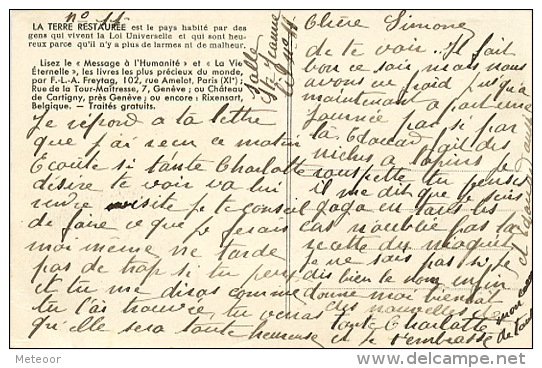 nº 11
LA TERRE RESTAURÉE est le pays habité par des
gens qui vivent la Loi Universelle et qui sont heu-
reux parce qu'il n'y a plus de larmes ni de malheur.
Lisez le « Message à l'Humanité » et « La Vie
Éternelle », les livres les plus précieux du monde,
par F.-L.-A. Freytag, 102, rue Amelot, Paris (XIe);
Rue de la Tour-Maîtresse, 7, Genève; ou Château
de Cartigny, près Genève; ou encore: Rixensart,
Belgique. — Traités gratuits.
Salle
Ste Jeanne
Je répond a la lettre
que j'ai reçu ce matin
Ecoute si tante Charlotte
désire te voir va lui
rendre visite je te conseil
de faire ce que je ferais
moi meme ne tarde
pas de trop si tu peux
et tu me diras comme
tu l'as trouvée, tu verras
qu'elle sera toute heureuse
Chère Simone
de te voir. Il fait
bon ce soir mais nous
avons eu froid jusqu'a
maintenant a part une
journée par si par
la Edouard fait des
niches a lapins
il me dit que je suis
gaga en tous cas
n'oublie pas la
recette du
je ne sais pas si je
dis bien le nom enfin
donne moi bientot
des nouvelles de
tante Charlotte
et je t'embrasse